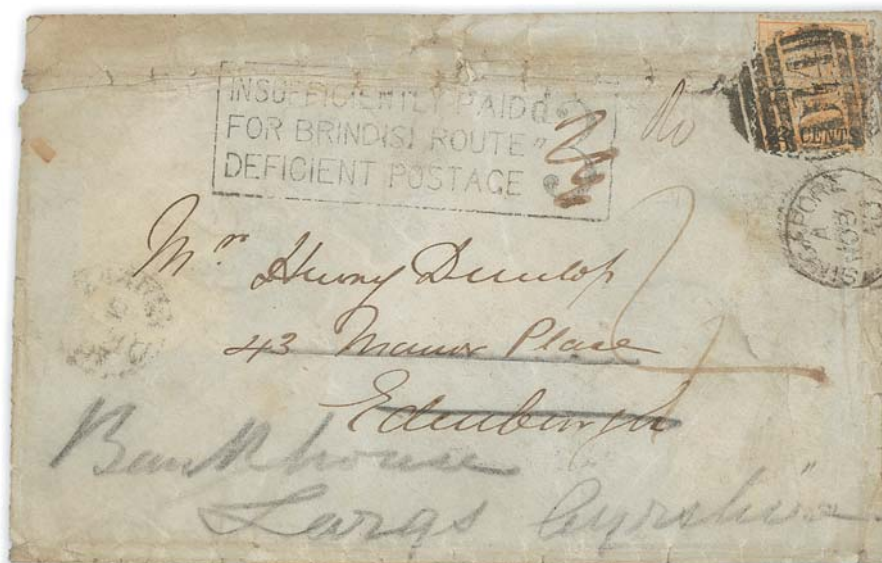 INSUFFICIENTLY PAID d
FOR BRINDISI ROUTE "
DEFICIENT POSTAGE
CENTS
SINGAPORE
Mr Henry Dunlop
43 Manor Place
Edinburgh
Bankhouse
Largs Ayrshire